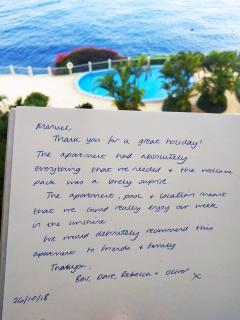 Manuel,
Thank you for a great holiday!
The apartment had absolutely
everything that we needed & the welcome
pack was a lovely surprise.
The apartment, pool & location meant
that we could really enjoy our week
in the sunshine.
We would definitely recommend this
apartment to friends & family
Thankyou,
Bev, Dave, Rebecca & Oliver
x
26/10/18.